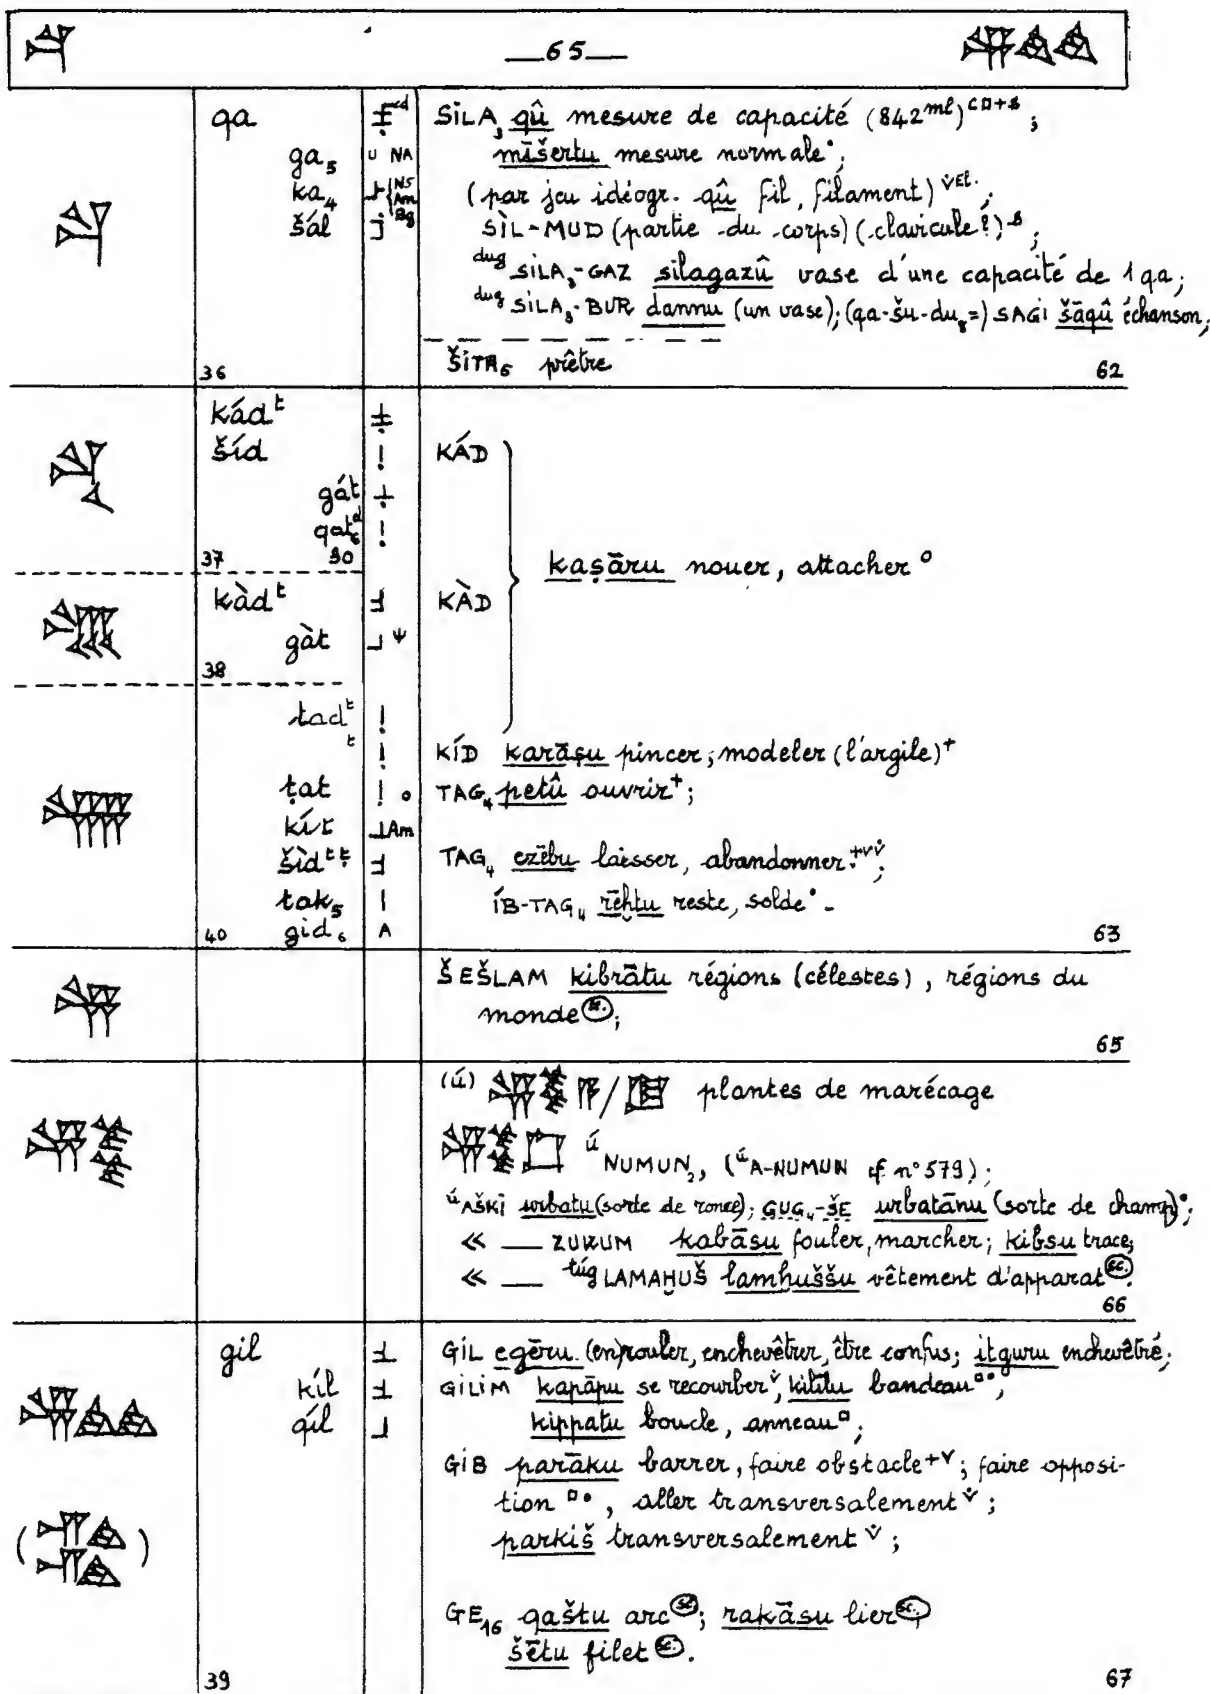 65
qa SILA₃ qû mesure de capacité (842 ml);
ga₅ U NA mīšertu mesure normale°;
ka₄ NS Am (par jeu idéogr. qû fil, filament);
šál Bg SÌL-MUD (partie du corps) (clavicule?);
dug SILA₃-GAZ silagazû vase d'une capacité de 1 qa;
dug SILA₃-BUR dannu (un vase); (qa-šu-du₈=) SAGI šāqû échanson;
36 ŠITA₅ prêtre 62
kád t
šíd ! KÁD
gát
qat₆ !
37 30
kaṣāru nouer, attacher °
kàd t KÀD
gàt ψ
38
tad t !
t ! KÍD karāṣu pincer; modeler (l'argile)⁺
ṭat ! o TAG₄ petû ouvrir⁺;
kít Am
šìd t ṭ TAG₄ ezēbu laisser, abandonner;
tak₅ ÍB-TAG₄ rēḫtu reste, solde° -
40 gid₆ A 63
ŠEŠLAM kibrātu régions (célestes), régions du
monde (sc.);
65
(ú) / plantes de marécage
ú NUMUN₂, (ú A-NUMUN cf. n° 579);
ú AŠKI urbatu (sorte de ronce); GUG₄-ŠE urbatānu (sorte de champ)°;
« — ZUKUM kabāsu fouler, marcher; kibsu trace;
« — túg LAMAḪUŠ lamḫuššu vêtement d'apparat (sc.).
66
gil GIL egēru (en)rouler, enchevêtrer, être confus; itguru enchevêtré;
kíl GILIM kapāpu se recourber; kilīlu bandeau;
qíl kippatu boucle, anneau;
GIB parāku barrer, faire obstacle; faire opposi-
tion, aller transversalement;
parkiš transversalement;
GE₁₆ qaštu arc (sc.); rakāsu lier (sc.)
šētu filet (sc.).
39 67